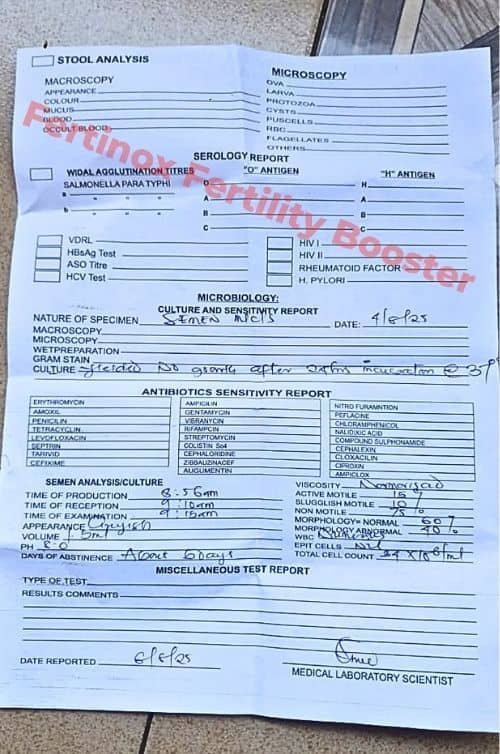 STOOL ANALYSIS
MACROSCOPY
APPEARANCE
COLOUR
MUCUS
BLOOD
OCCULT BLOOD
MICROSCOPY
OVA
LARVA
PROTOZOA
CYSTS
PUSCELLS
RBC
FLAGELLATES
OTHERS
Fertinox Fertility Booster
SEROLOGY REPORT
WIDAL AGGLUTINATION TITRES "O" ANTIGEN "H" ANTIGEN
SALMONELLA PARA TYPHI D H
a " " " A A
b " " " B B
c C C
VDRL
HBsAg Test
ASO Titre
HCV Test
HIV I
HIV II
RHEUMATOID FACTOR
H. PYLORI
MICROBIOLOGY:
CULTURE AND SENSITIVITY REPORT
NATURE OF SPECIMEN Semen M/C/S DATE: 4/8/25
MACROSCOPY
MICROSCOPY
WETPREPARATION
GRAM STAIN
CULTURE Yielded No growth after 24hrs incubation @ 37
ANTIBIOTICS SENSITIVITY REPORT
ERYTHROMYCIN
AMOXIL
PENICILIN
TETRACYCLIN
LEVOFLOXACIN
SEPTRIN
TARIVID
CEFIXIME
AMPICILIN
GENTAMYCIN
VIBRANYCIN
RIFAMPCIN
STREPTOMYCIN
COLISTIN So4
CEPHALORIDINE
ZIBBAUZINACEF
AUGUMENTIN
NITRO FURAMNTION
PEFLACINE
CHLORAMPHENICOL
NALIDIXIC ACID
COMPOUND SULPHONAMIDE
CEPHALEXIN
CLOXACILIN
CIPROXIN
AMPICLOX
SEMEN ANALYSIS/CULTURE
TIME OF PRODUCTION 8:56am
TIME OF RECEPTION 9:10am
TIME OF EXAMINATION 9:15am
APPEARANCE Greyish
VOLUME 1.5ml
PH 8.0
DAYS OF ABSTINENCE About 6 days
VISCOSITY Normal
ACTIVE MOTILE 15%
SLUGGLISH MOTILE 10%
NON MOTILE 75%
MORPHOLOGY= NORMAL 60%
MORPHOLOGY ABNORMAL 40%
WBC Numerous
EPIT CELLS Nil
TOTAL CELL COUNT 34 X 10^6/ml
MISCELLANEOUS TEST REPORT
TYPE OF TEST
RESULTS COMMENTS
DATE REPORTED 6/8/25
MEDICAL LABORATORY SCIENTIST